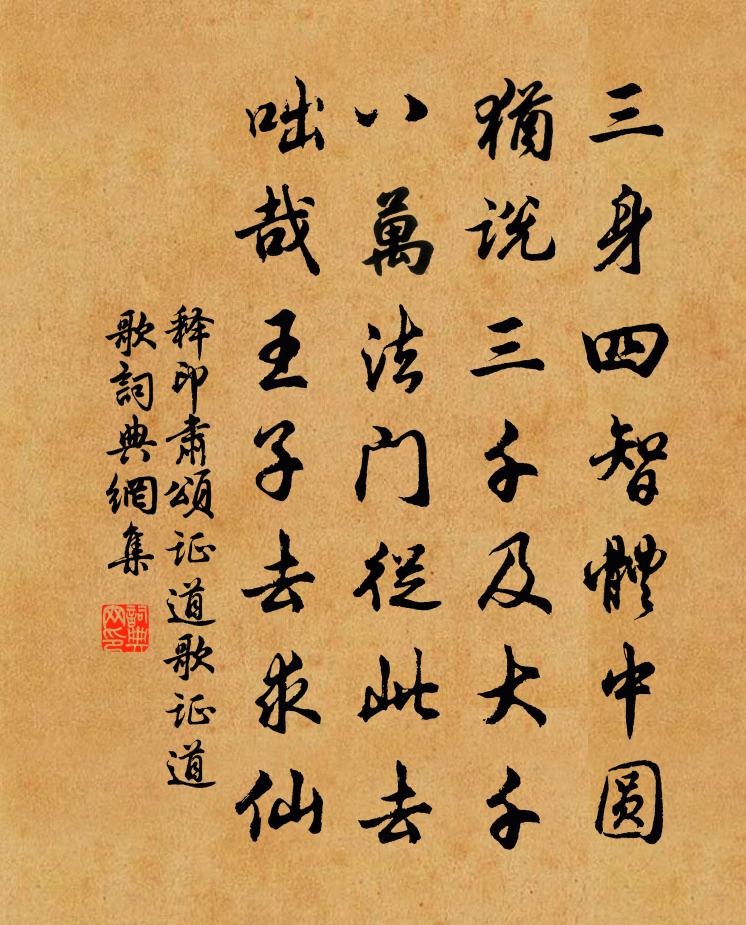 三身四智體中圓
猶說三千及大千
八萬法门從此去
咄哉王子去求仙
释印肃頌证道歌证道
歌詞典網集
詞典网印